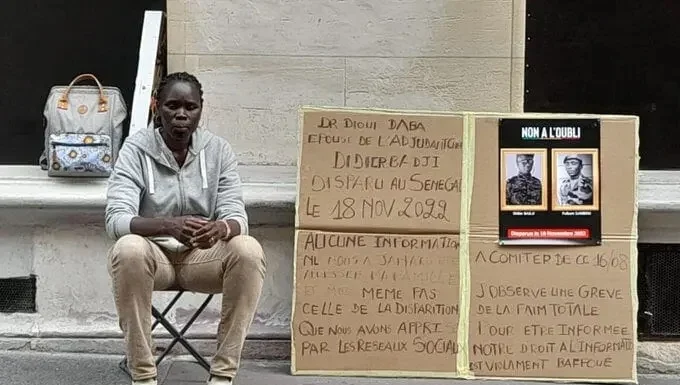 DR DIOUF DABA
EPOUSE DE L'ADJUDANT CHEF
DIDIER BADJI
DISPARU AU SENEGAL
LE 18 NOV 2022
AUCUNE INFORMATION
NE NOUS A JAMAIS ETE
LA FAMILLE
ET MEME PAS
CELLE DE LA DISPARITION
QUE NOUS AVONS APPRIS
PAR LES RESEAUX SOCIAUX
NON A L'OUBLI
Didier BADJI
Fulbert SAMBOU
Disparus le 18 Novembre 2022
A COMPTER DE CE 16/08
J'OBSERVE UNE GREVE
DE LA FAIM TOTALE
POUR ETRE INFORMEE
NOTRE DROIT A L'INFORMATI
EST VIOLAMENT BAFFOUE